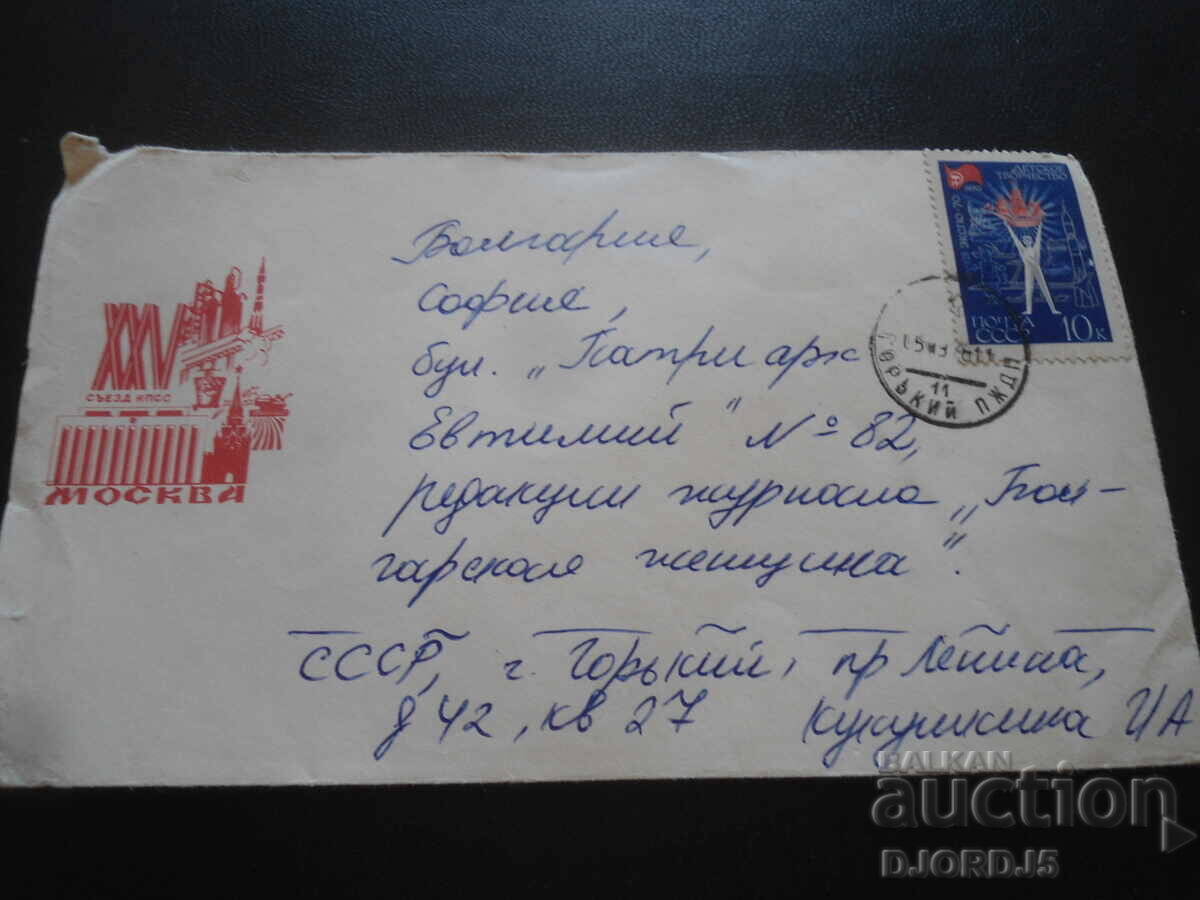 XXV
СЪЕЗД КПСС
МОСКВА
ДЕТСКОЕ
ТВОРЧЕСТВО
ПОЧТА
СССР
10к
11
ГОРЬКИЙ ПЖДП
Болгария,
София,
бул. „Патриарх
Евтимий" № 82,
редакция журнала „Бол-
гарская женщина".
СССР, г. Горький, пр Ленина,
д 42, кв 27 Кукушкина ИА
BALKAN
auction
DJORDJ5